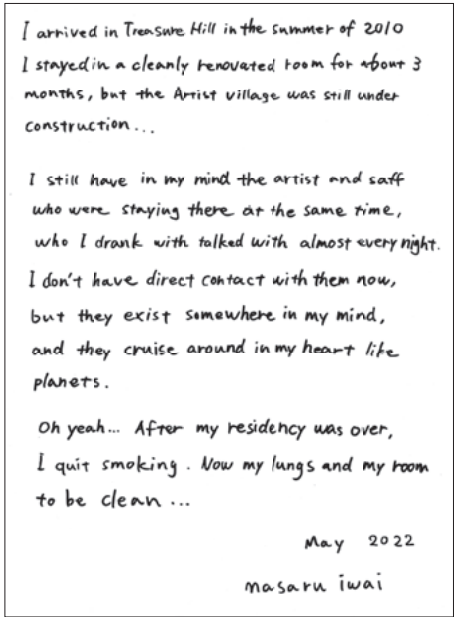 I arrived in Treasure Hill in the summer of 2010
I stayed in a cleanly renovated room for about 3
months, but the Artist village was still under
construction...
I still have in my mind the artist and saff
who were staying there at the same time,
who I drank with talked with almost every night.
I don't have direct contact with them now,
but they exist somewhere in my mind,
and they cruise around in my heart like
planets.
Oh yeah... After my residency was over,
I quit smoking. Now my lungs and my room
to be clean...
May 2022
masaru iwai